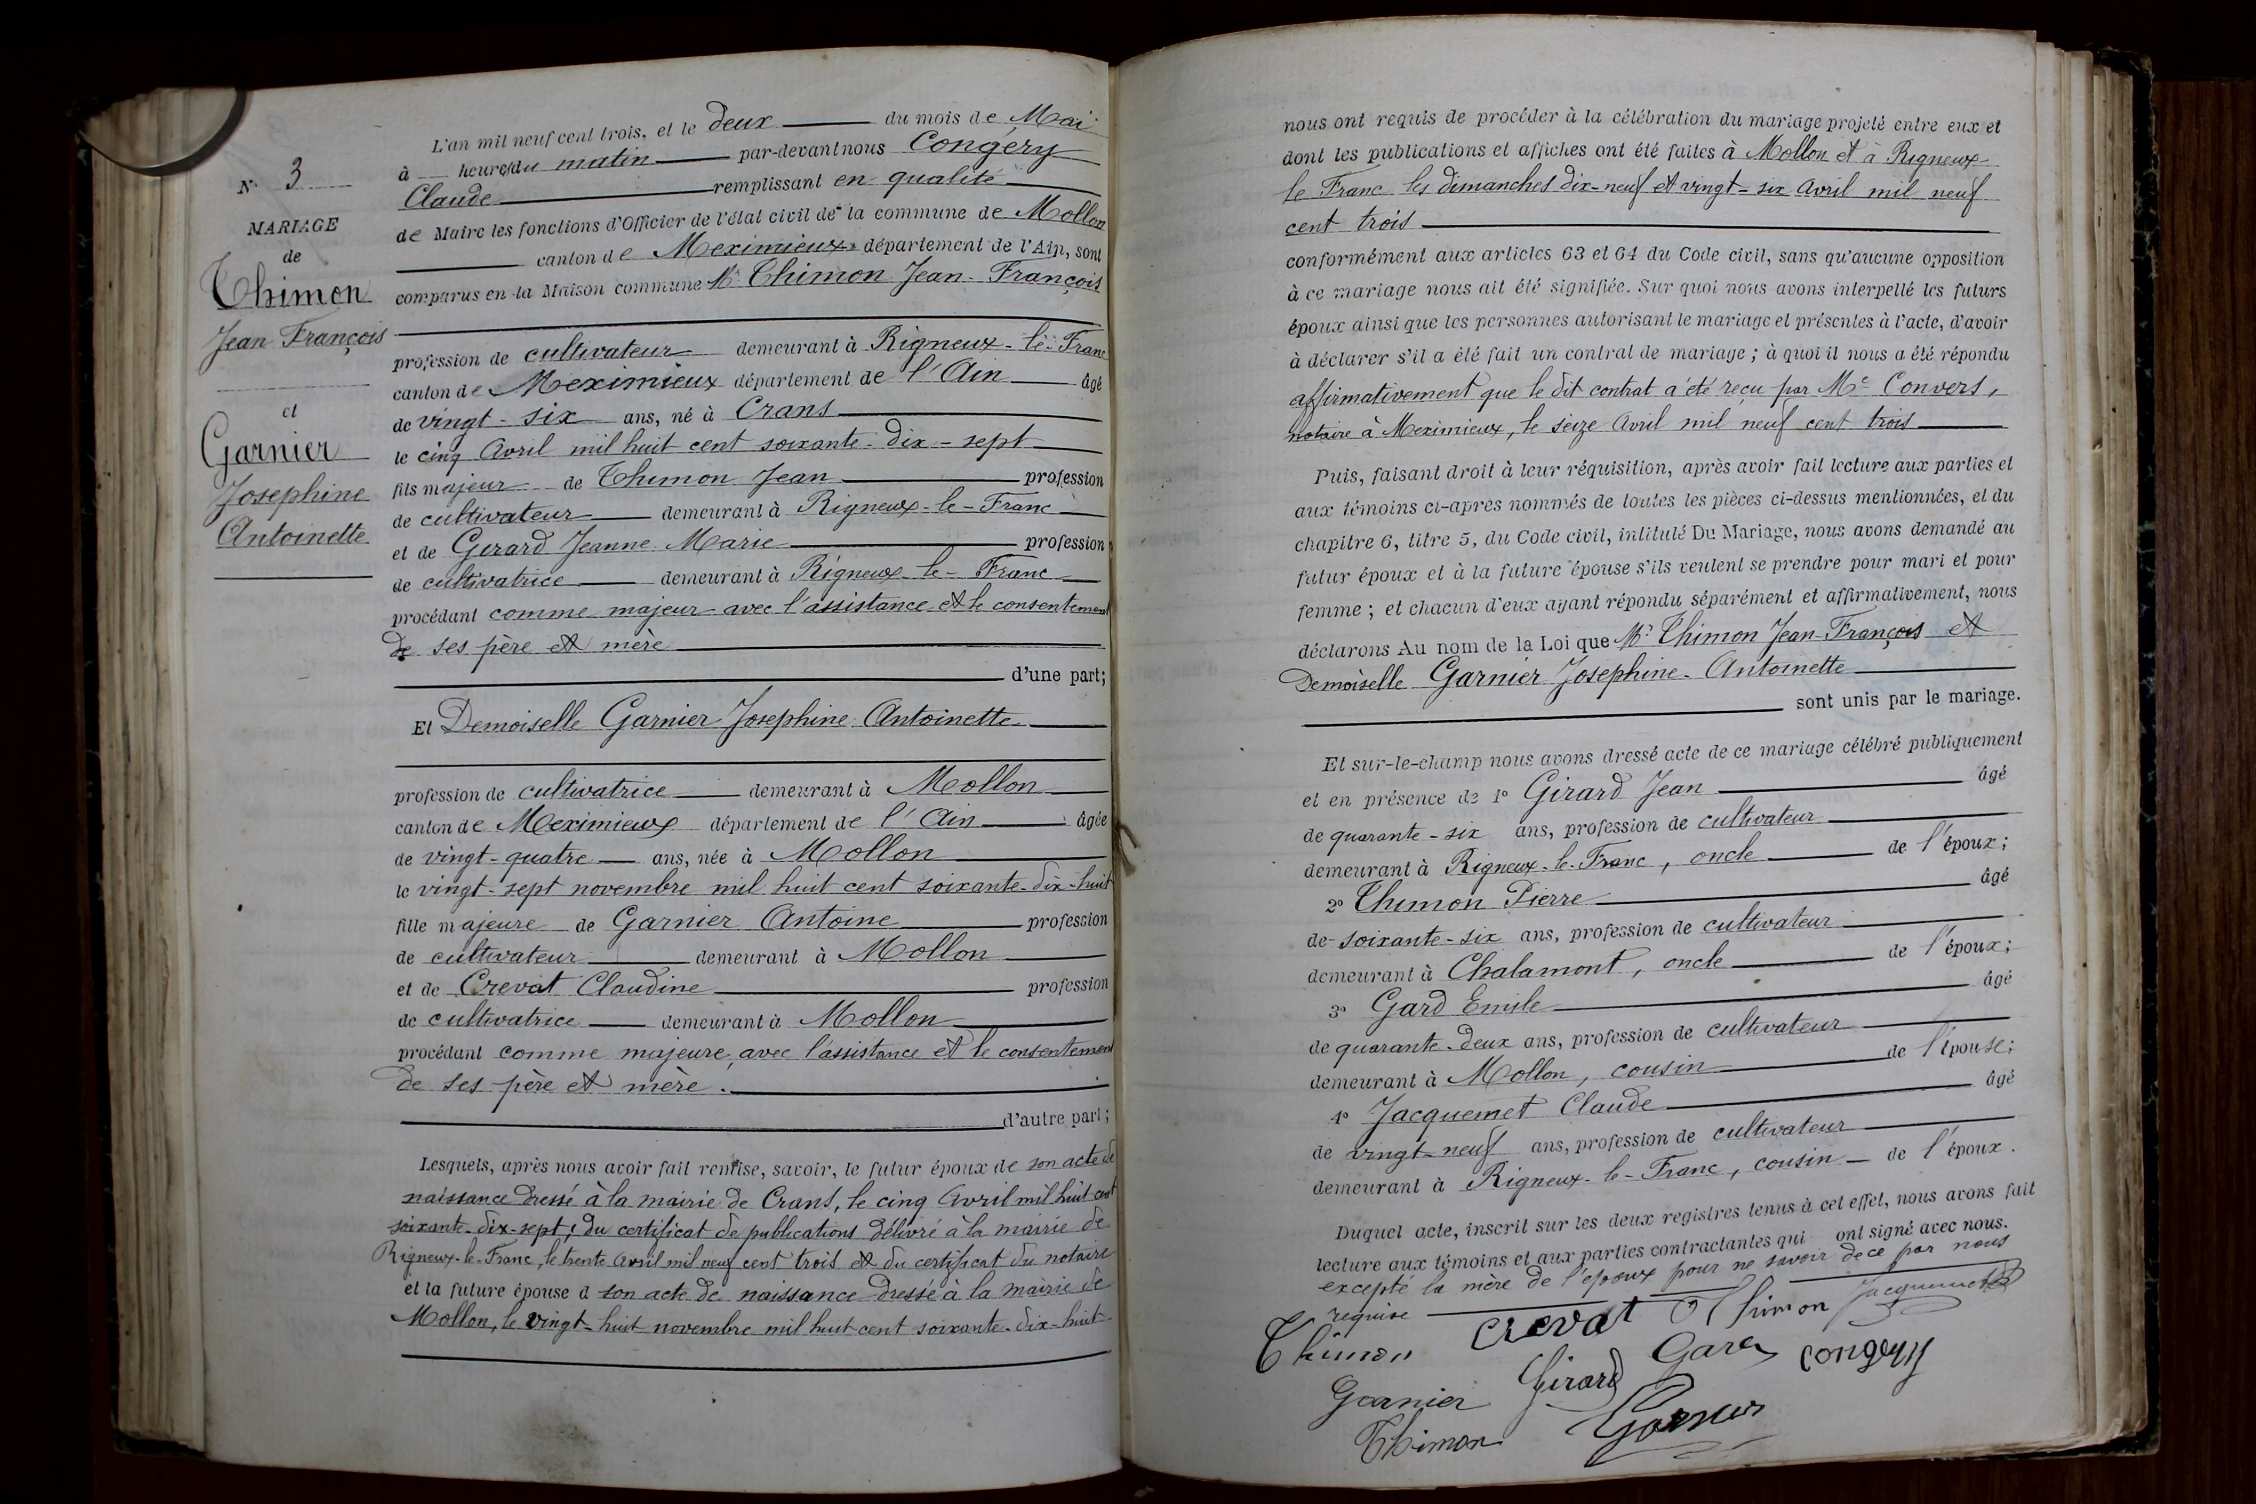 N° 3
MARIAGE
de
Thimon
Jean François
et
Garnier
Josephine
Antoinette
L'an mil neuf cent trois, et le deux du mois de Mai
à heures du matin par-devant nous Congery
Claude remplissant en qualité
de Maire les fonctions d'Officier de l'état civil de la commune de Mollon
canton de Meximieux département de l'Ain, sont
comparus en la Maison commune Mr Thimon Jean-François
profession de cultivateur demeurant à Rigneux-le-Franc
canton de Meximieux département de l'Ain âgé
de vingt-six ans, né à Crans
le cinq Avril mil huit cent soixante-dix-sept
fils majeur de Thimon Jean profession
de cultivateur demeurant à Rigneux-le-Franc
et de Gerard Jeanne Marie profession
de cultivatrice demeurant à Rigneux-le-Franc
procédant comme majeur avec l'assistance et le consentement
de ses père et mère
d'une part;
Et Demoiselle Garnier Josephine Antoinette
profession de cultivatrice demeurant à Mollon
canton de Meximieux département de l'Ain âgée
de vingt-quatre ans, née à Mollon
le vingt-sept novembre mil huit cent soixante-dix-huit
fille majeure de Garnier Antoine profession
de cultivateur demeurant à Mollon
et de Crevat Claudine profession
de cultivatrice demeurant à Mollon
procédant comme majeure, avec l'assistance et le consentement
de ses père et mère.
d'autre part;
Lesquels, après nous avoir fait remise, savoir, le futur époux de son acte de
naissance dressé à la mairie de Crans, le cinq Avril mil huit cent
soixante-dix-sept; du certificat de publications délivré à la mairie de
Rigneux-le-Franc, le trente Avril mil neuf cent trois et du certificat du notaire
et la future épouse d son acte de naissance dressé à la mairie de
Mollon, le vingt-huit novembre mil huit cent soixante-dix-huit
nous ont requis de procéder à la célébration du mariage projeté entre eux et
dont les publications et affiches ont été faites à Mollon et à Rigneux-
le Franc les dimanches dix-neuf et vingt-six Avril mil neuf
cent trois
conformément aux articles 63 et 64 du Code civil, sans qu'aucune opposition
à ce mariage nous ait été signifiée. Sur quoi nous avons interpellé les futurs
époux ainsi que les personnes autorisant le mariage et présentes à l'acte, d'avoir
à déclarer s'il a été fait un contrat de mariage; à quoi il nous a été répondu
affirmativement que le dit contrat a été reçu par Me Convers,
notaire à Meximieux, le seize Avril mil neuf cent trois
Puis, faisant droit à leur réquisition, après avoir fait lecture aux parties et
aux témoins ci-après nommés de toutes les pièces ci-dessus mentionnées, et du
chapitre 6, titre 5, du Code civil, intitulé Du Mariage, nous avons demandé au
futur époux et à la future épouse s'ils veulent se prendre pour mari et pour
femme; et chacun d'eux ayant répondu séparément et affirmativement, nous
déclarons Au nom de la Loi que Mr Thimon Jean-François et
Demoiselle Garnier Josephine-Antoinette
sont unis par le mariage.
Et sur-le-champ nous avons dressé acte de ce mariage célébré publiquement
et en présence de 1° Girard Jean âgé
de quarante-six ans, profession de cultivateur
demeurant à Rigneux-le-Franc, oncle de l'époux;
2° Thimon Pierre âgé
de soixante-six ans, profession de cultivateur
demeurant à Chalamont, oncle de l'époux;
3° Gard Emile âgé
de quarante-deux ans, profession de cultivateur
demeurant à Mollon, cousin de l'épouse;
4° Jacquemet Claude âgé
de vingt-neuf ans, profession de cultivateur
demeurant à Rigneux-le-Franc, cousin de l'époux.
Duquel acte, inscrit sur les deux registres tenus à cet effet, nous avons fait
lecture aux témoins et aux parties contractantes qui ont signé avec nous.
excepté la mère de l'époux pour ne savoir de ce par nous
requise
Thimon Crevat Thimon Jacquemet
Garnier Girard Gard Congery
Thimon Garnier